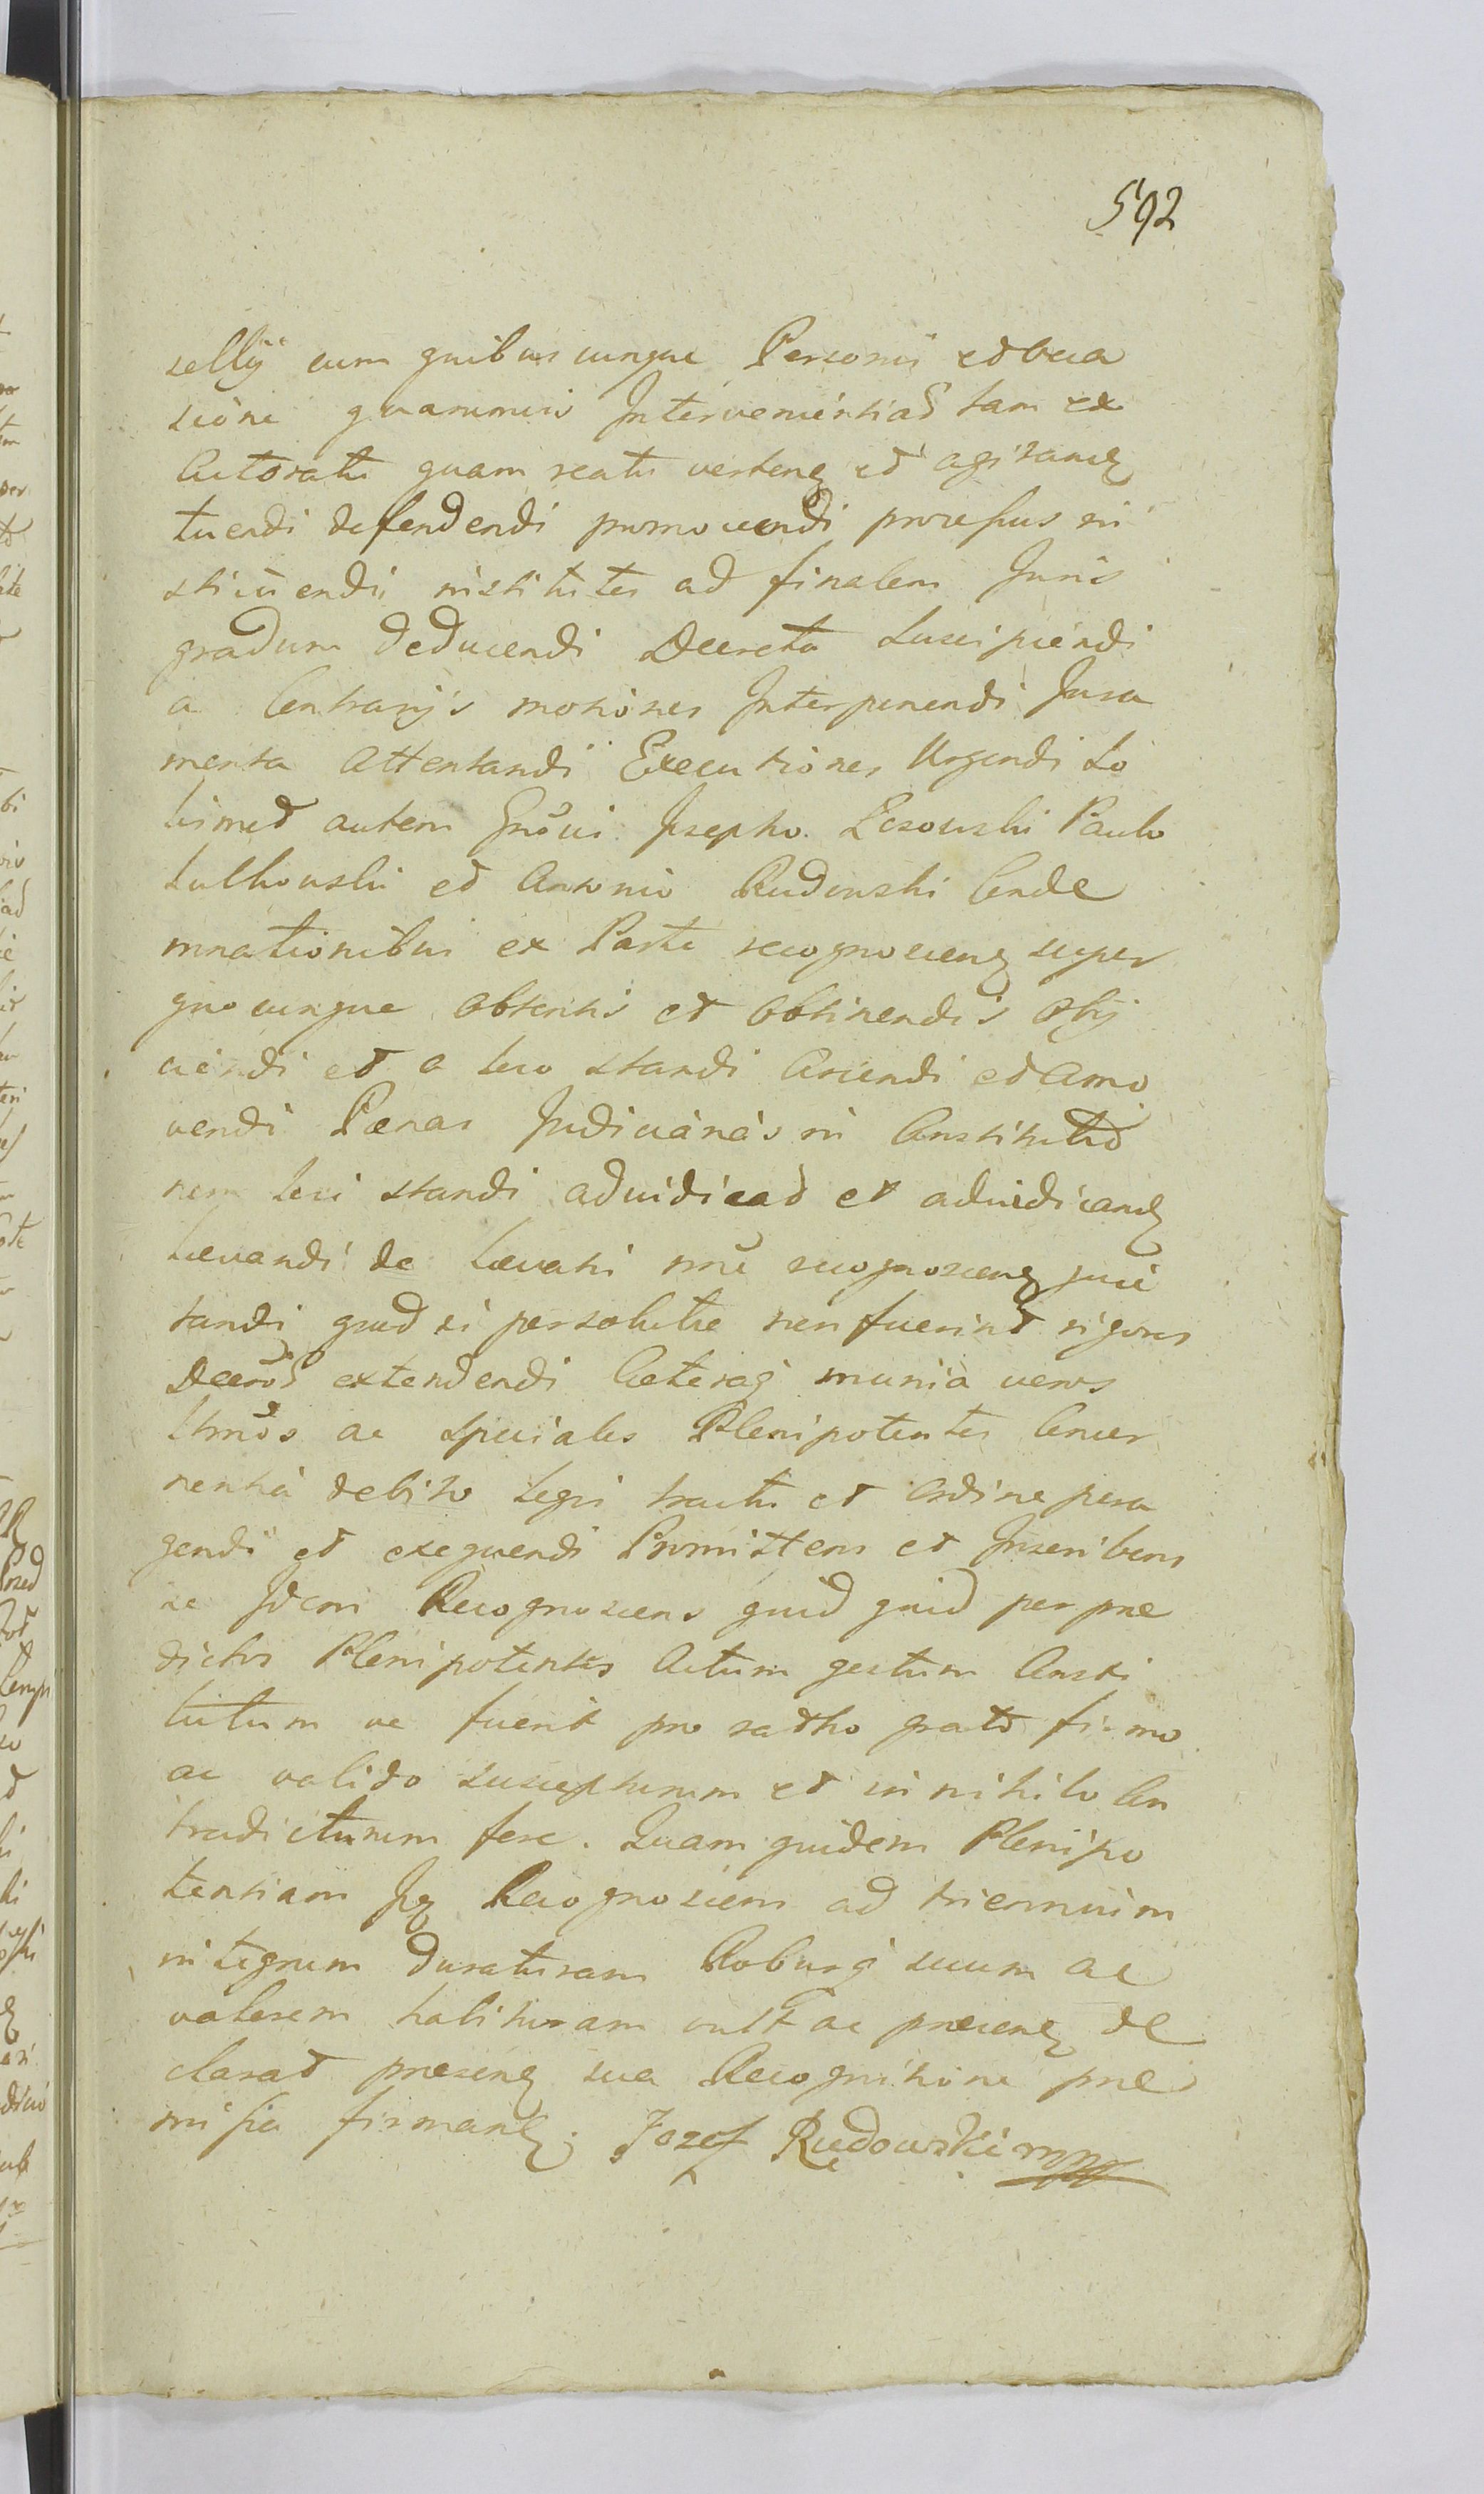 592
selly cum quibuscunque Personis et occa
sione quarumvis Intervenientias tam ex
Actoratu quam reatu verten et agitan
tuendi defendendi promovendi processus in
stituendi institutos ad finalem Juris
gradum deducendi Decreta suscipiendi
a Contrarijs motiones Interponendi Jura
menta Attentandi Executiones Urgendi So
lis autem Josepho Lisowski Paulo
Sulkowski et Antonio Rudowski Conde
mnationibus ex Parte recognoscen super
quocunque obtentis et obtinendis Obij
ciendi et a loco standi Arcendi et Amo
vendi Paenas Judiciarias in Constitutio
nem loci standi adiudicat et adiudican
Levandi de Levatis nomine recognoscen quie
tandi quod si persolutae non fuerint rigores
extendendi Caeteraq munia veros
ac speciales Plenipotentes Concer
nentia debito legis tractu et ordine pera
gendi et exequendi Promittens et Inscribens
se Idem Recognoscens quid quid per prae
dictos Plenipotentes Actum gestum Consti
tutum ve fuerit pro ratho grato firmo
ac valido suscepturum et in nihilo Con
tradicturum fore. Quam quidem Plenipo
tentiam Recognoscens ad triennium
integrum duraturam Roburq suum ac
valorem habituram vult ac praesen de
clarat praesen sua Recognitione prae
missa firman. Jozef Rudowski mpp